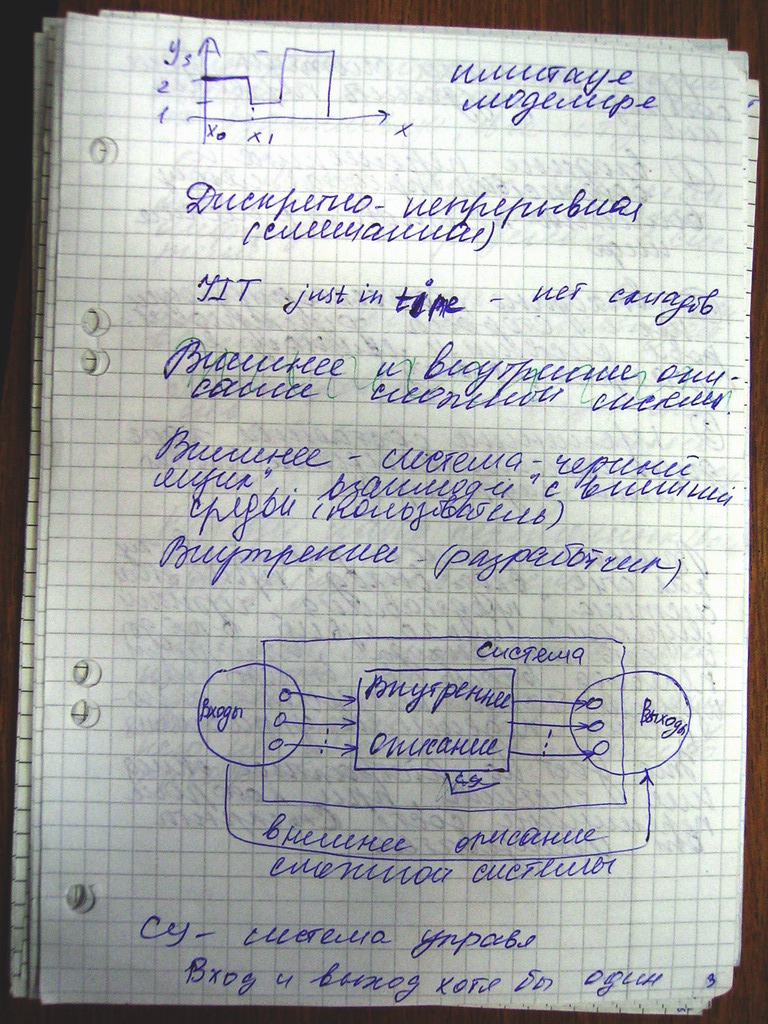 y₃
2
1
x₀ x₁ x
имитацуе
моделире
Дискретно- непрерывная
(смешанная)
JIT just in time - нет складов
Внешнее и внутреннее опи-
сание сложной системы.
Внешнее - система - "черный
ящик" взаимодй с внешней
средой (пользователь)
Внутреннее - (разработчик)
система
Входы Внутреннее Выходы
описание
внешнее описание
сложной системы
СУ - система управл
Вход и выход хотя бы один